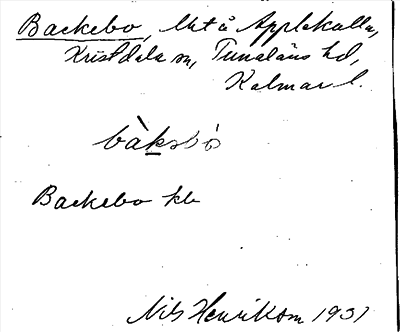 Backebo, lht å Applekulla,
Kristdala sn, Tunaläns hd,
Kalmar l.
bàksbo
Backebo kb
Nils Henrikson 1931